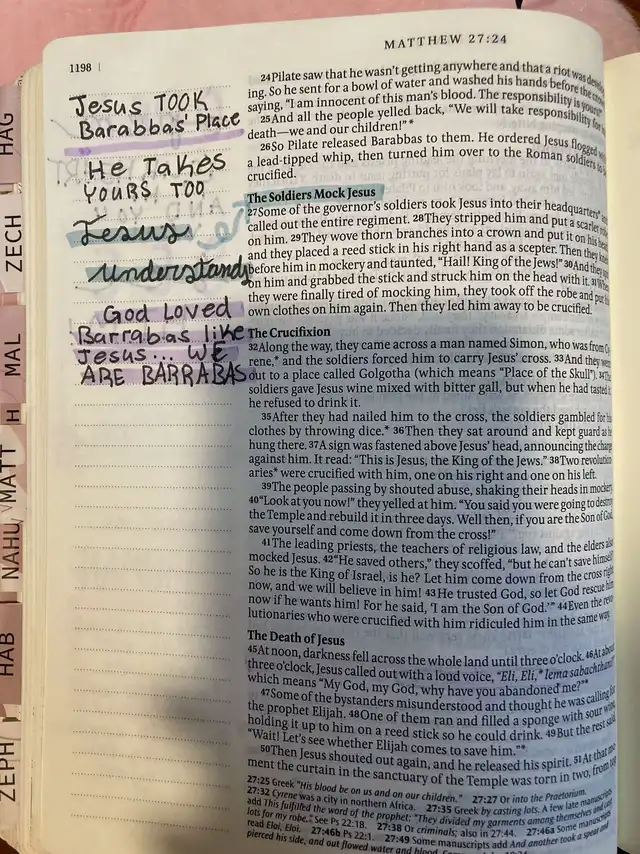 MATTHEW 27:24
1198
HAG
ZECH
MAL
H
MATT
NAHU
HAB
ZEPH
Jesus TOOK
Barabbas' Place
He Takes
YOURS TOO
Jesus
understands
God Loved
Barrabas like
Jesus... WE
ARE BARRABAS
24Pilate saw that he wasn't getting anywhere and that a riot was
ing. So he sent for a bowl of water and washed his hands before the
saying, "I am innocent of this man's blood. The responsibility is
25And all the people yelled back, "We will take responsibility for
death—we and our children!"*
26So Pilate released Barabbas to them. He ordered Jesus flogged
a lead-tipped whip, then turned him over to the Roman soldiers to
crucified.
The Soldiers Mock Jesus
27Some of the governor's soldiers took Jesus into their headquarters*
called out the entire regiment. 28They stripped him and put a scarlet
on him. 29They wove thorn branches into a crown and put it on his
and they placed a reed stick in his right hand as a scepter. Then they
before him in mockery and taunted, "Hail! King of the Jews!" 30And they
on him and grabbed the stick and struck him on the head with it. 31
they were finally tired of mocking him, they took off the robe and put
own clothes on him again. Then they led him away to be crucified.
The Crucifixion
32Along the way, they came across a man named Simon, who was from
rene,* and the soldiers forced him to carry Jesus' cross. 33And they
out to a place called Golgotha (which means "Place of the Skull"). 34
soldiers gave Jesus wine mixed with bitter gall, but when he had tasted
he refused to drink it.
35After they had nailed him to the cross, the soldiers gambled for
clothes by throwing dice.* 36Then they sat around and kept guard as
hung there. 37A sign was fastened above Jesus' head, announcing the
against him. It read: "This is Jesus, the King of the Jews." 38Two revolution
aries* were crucified with him, one on his right and one on his left.
39The people passing by shouted abuse, shaking their heads in mockery.
40"Look at you now!" they yelled at him. "You said you were going to destroy
the Temple and rebuild it in three days. Well then, if you are the Son of God,
save yourself and come down from the cross!"
41The leading priests, the teachers of religious law, and the elders
mocked Jesus. 42"He saved others," they scoffed, "but he can't save himself
So he is the King of Israel, is he? Let him come down from the cross
now, and we will believe in him! 43He trusted God, so let God rescue
now if he wants him! For he said, 'I am the Son of God.'" 44Even the
lutionaries who were crucified with him ridiculed him in the same way.
The Death of Jesus
45At noon, darkness fell across the whole land until three o'clock. 46At about
three o'clock, Jesus called out with a loud voice, "Eli, Eli,* lema sabachthani
which means "My God, my God, why have you abandoned me?"*
47Some of the bystanders misunderstood and thought he was calling for
the prophet Elijah. 48One of them ran and filled a sponge with sour
holding it up to him on a reed stick so he could drink. 49But the rest
"Wait! Let's see whether Elijah comes to save him."*
50Then Jesus shouted out again, and he released his spirit. 51At that
ment the curtain in the sanctuary of the Temple was torn in two, from
27:25 Greek "His blood be on us and on our children." 27:27 Or into the Praetorium.
27:32 Cyrene was a city in northern Africa. 27:35 Greek by casting lots. A few late manuscripts
add This fulfilled the word of the prophet: "They divided my garments among themselves and cast
lots for my robe." See Ps 22:18. 27:38 Or criminals; also in 27:44. 27:46a Some manuscripts
read Eloi, Eloi. 27:46b Ps 22:1. 27:49 Some manuscripts add And another took a spear and
pierced his side, and out flowed water and blood.